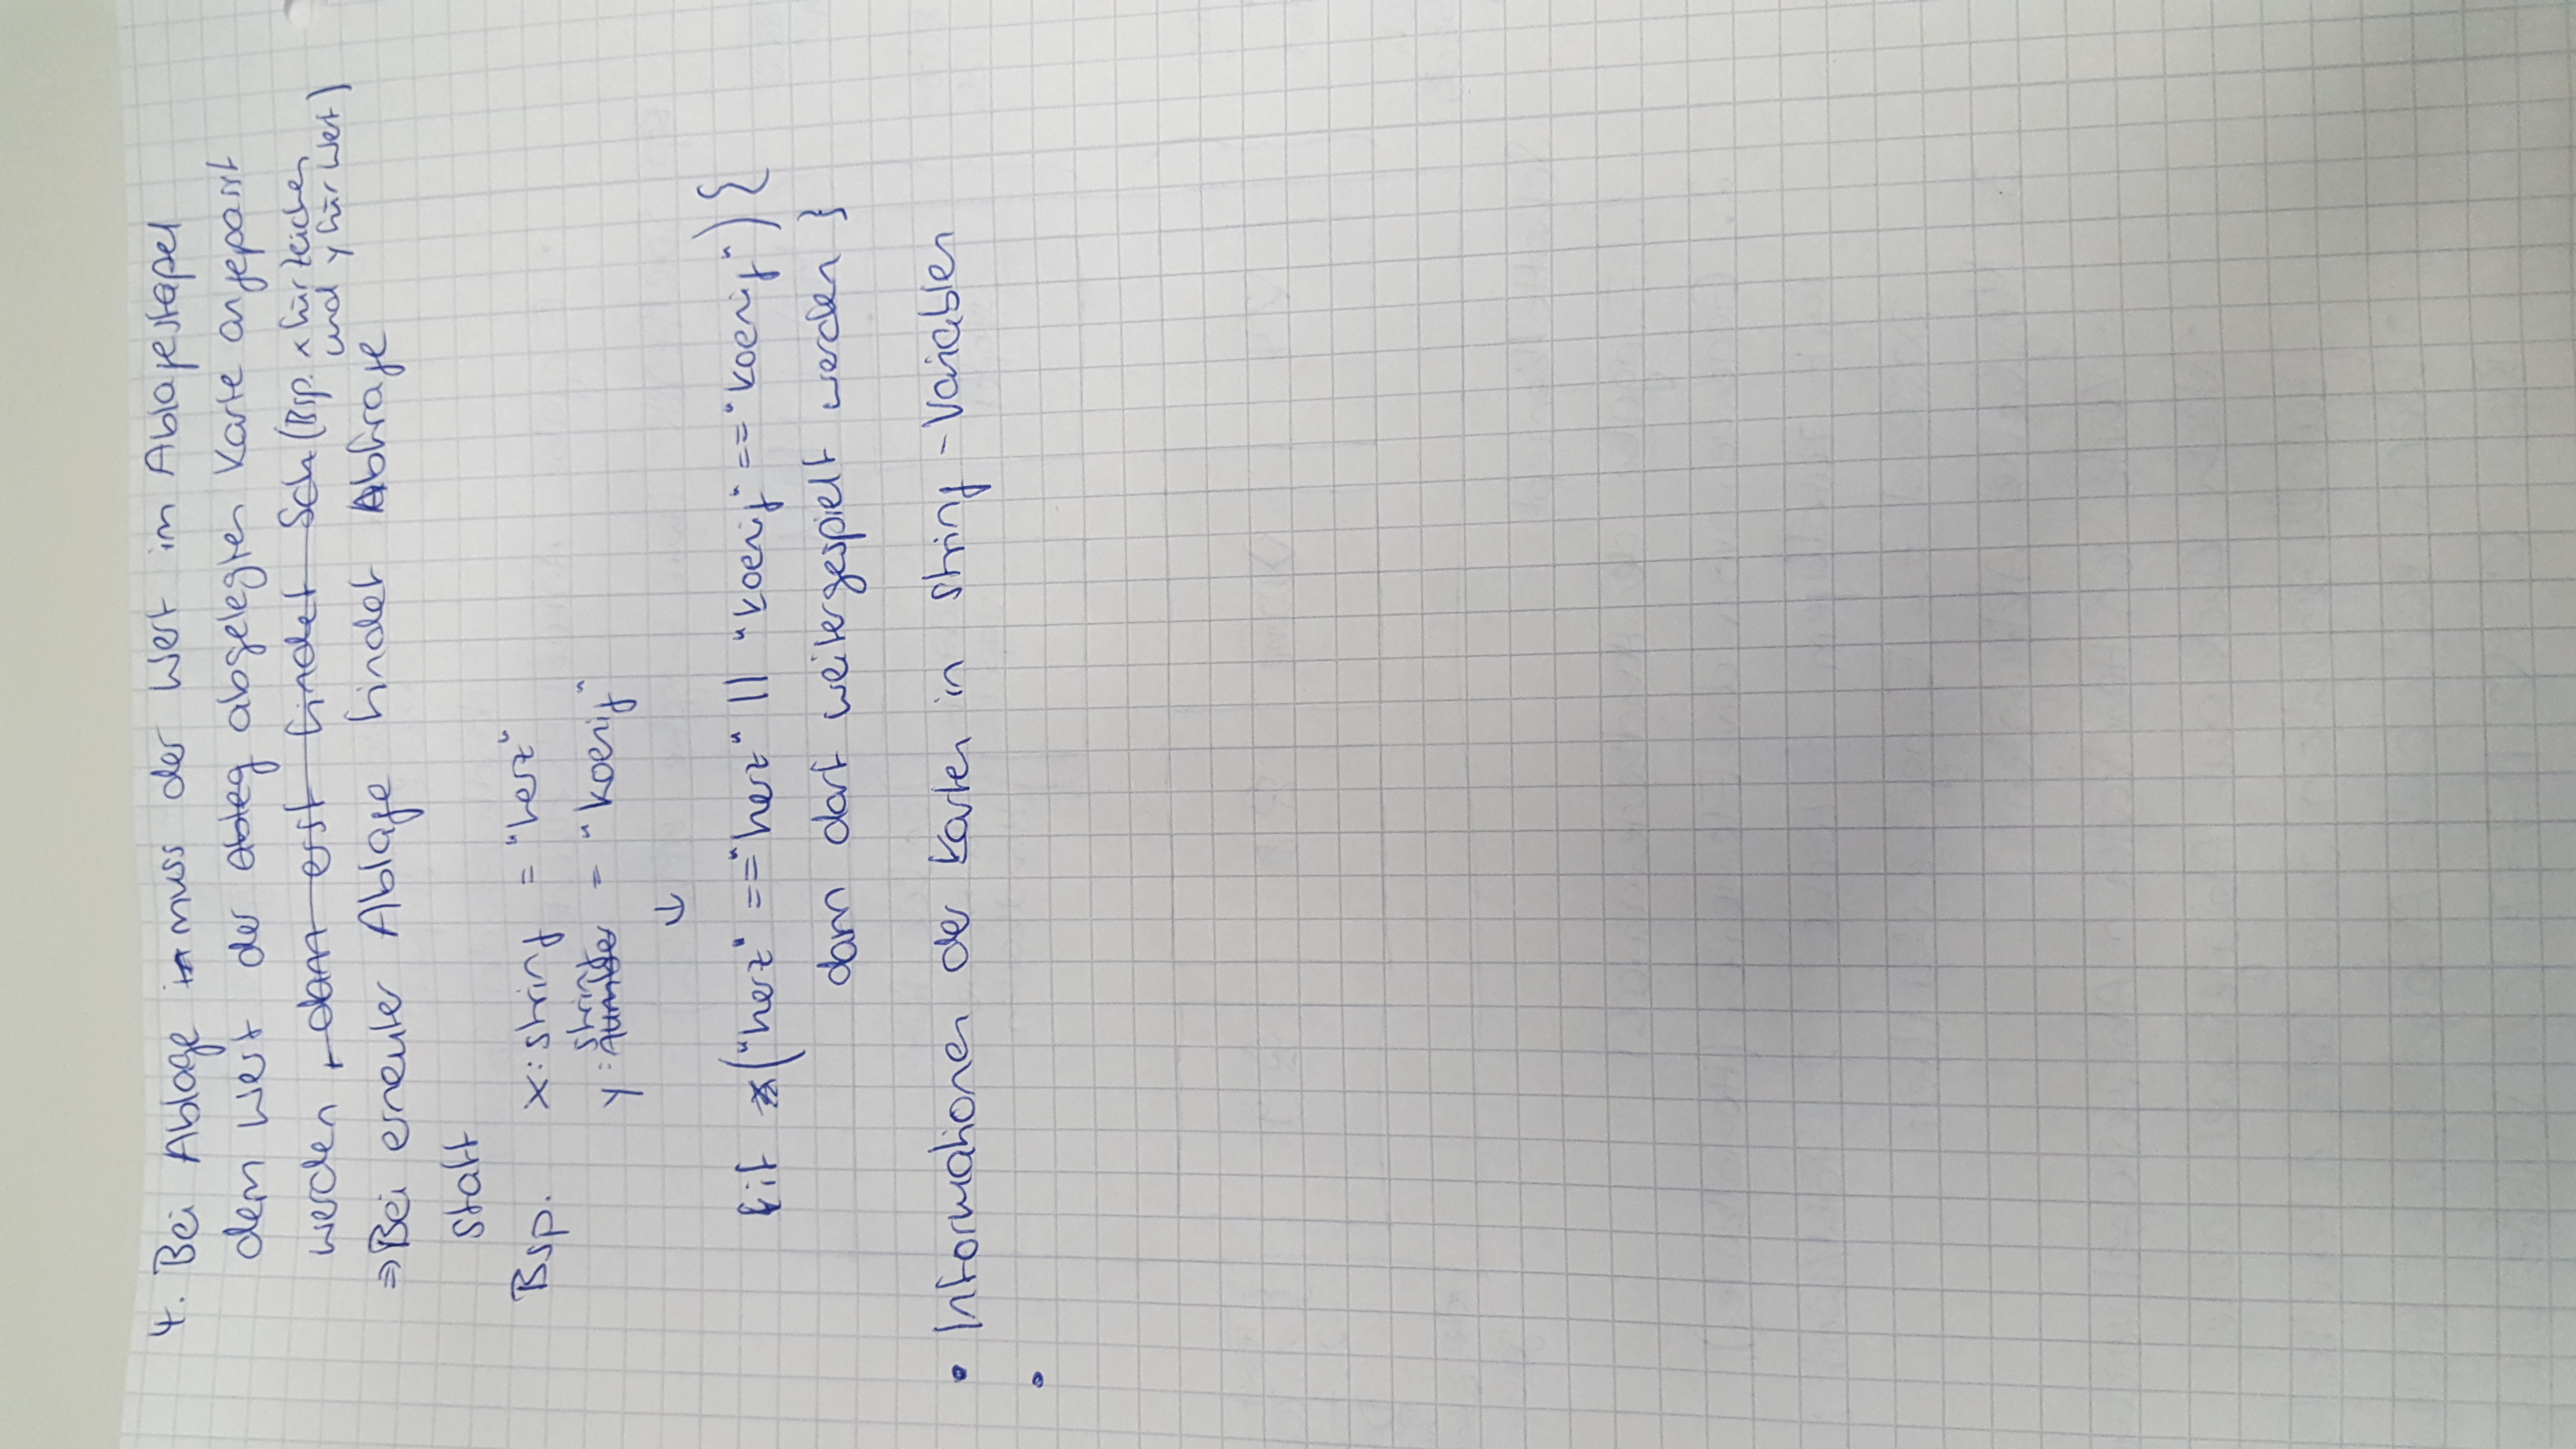 4. Bei Ablage in muss der Wert im Ablagestapel
dem Wert der ableg abgelegten Karte angepasst
werden, dann erst findet Sch (Bsp. x für Zeichen
und y für Wert)
⇒ Bei erneuter Ablage findet Abfrage
statt
Bsp. x: string = "herz"
string
y: number = "koenig"
↓
if ("herz" == "herz" || "koenig" == "koenig") {
dann darf weitergespielt werden }
• Informationen der Karten in string-Variablen
•